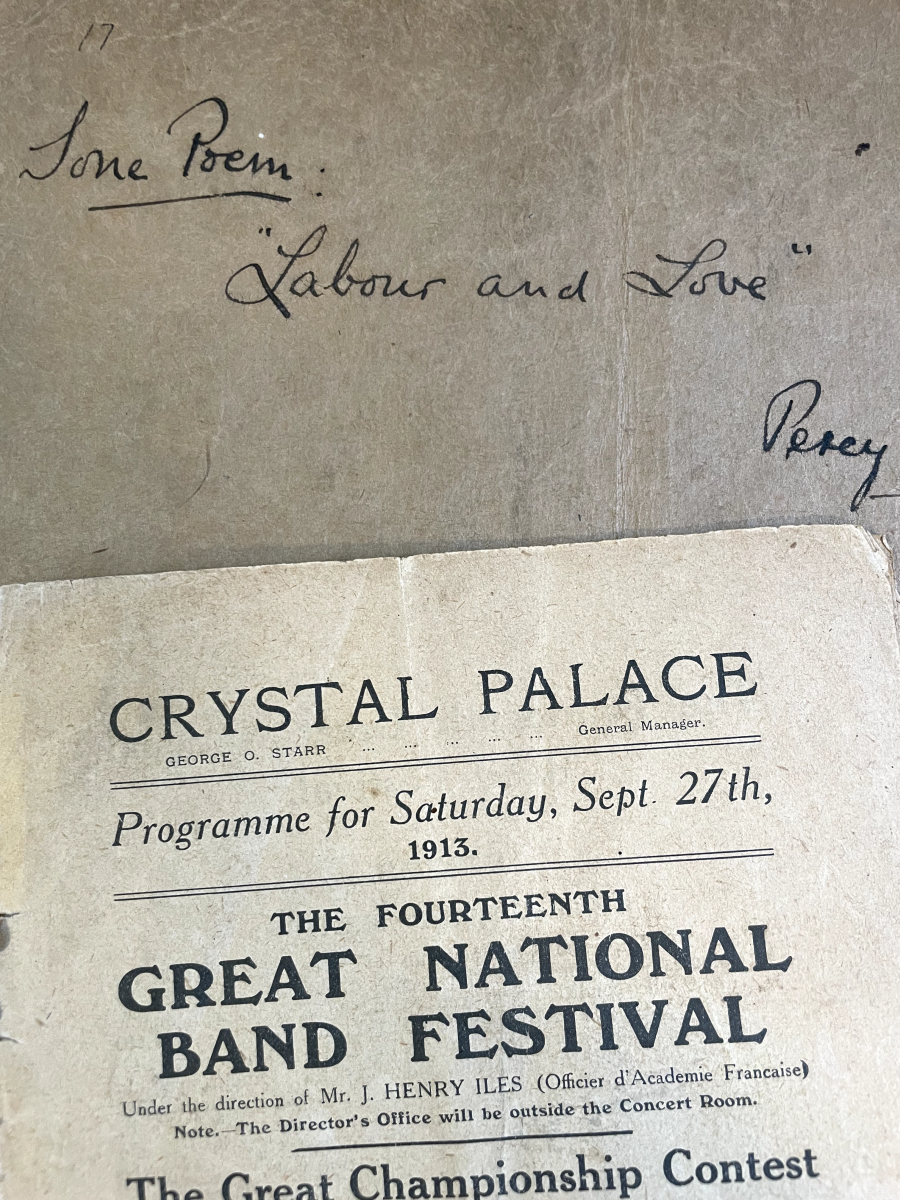 17
Tone Poem:
"Labour and Love"
Percy
CRYSTAL PALACE
GEORGE O. STARR ... ... ... ... ... General Manager.
Programme for Saturday, Sept. 27th,
1913.
THE FOURTEENTH
GREAT NATIONAL
BAND FESTIVAL
Under the direction of Mr. J. HENRY ILES (Officier d'Academie Francaise)
Note.—The Director's Office will be outside the Concert Room.
The Great Championship Contest